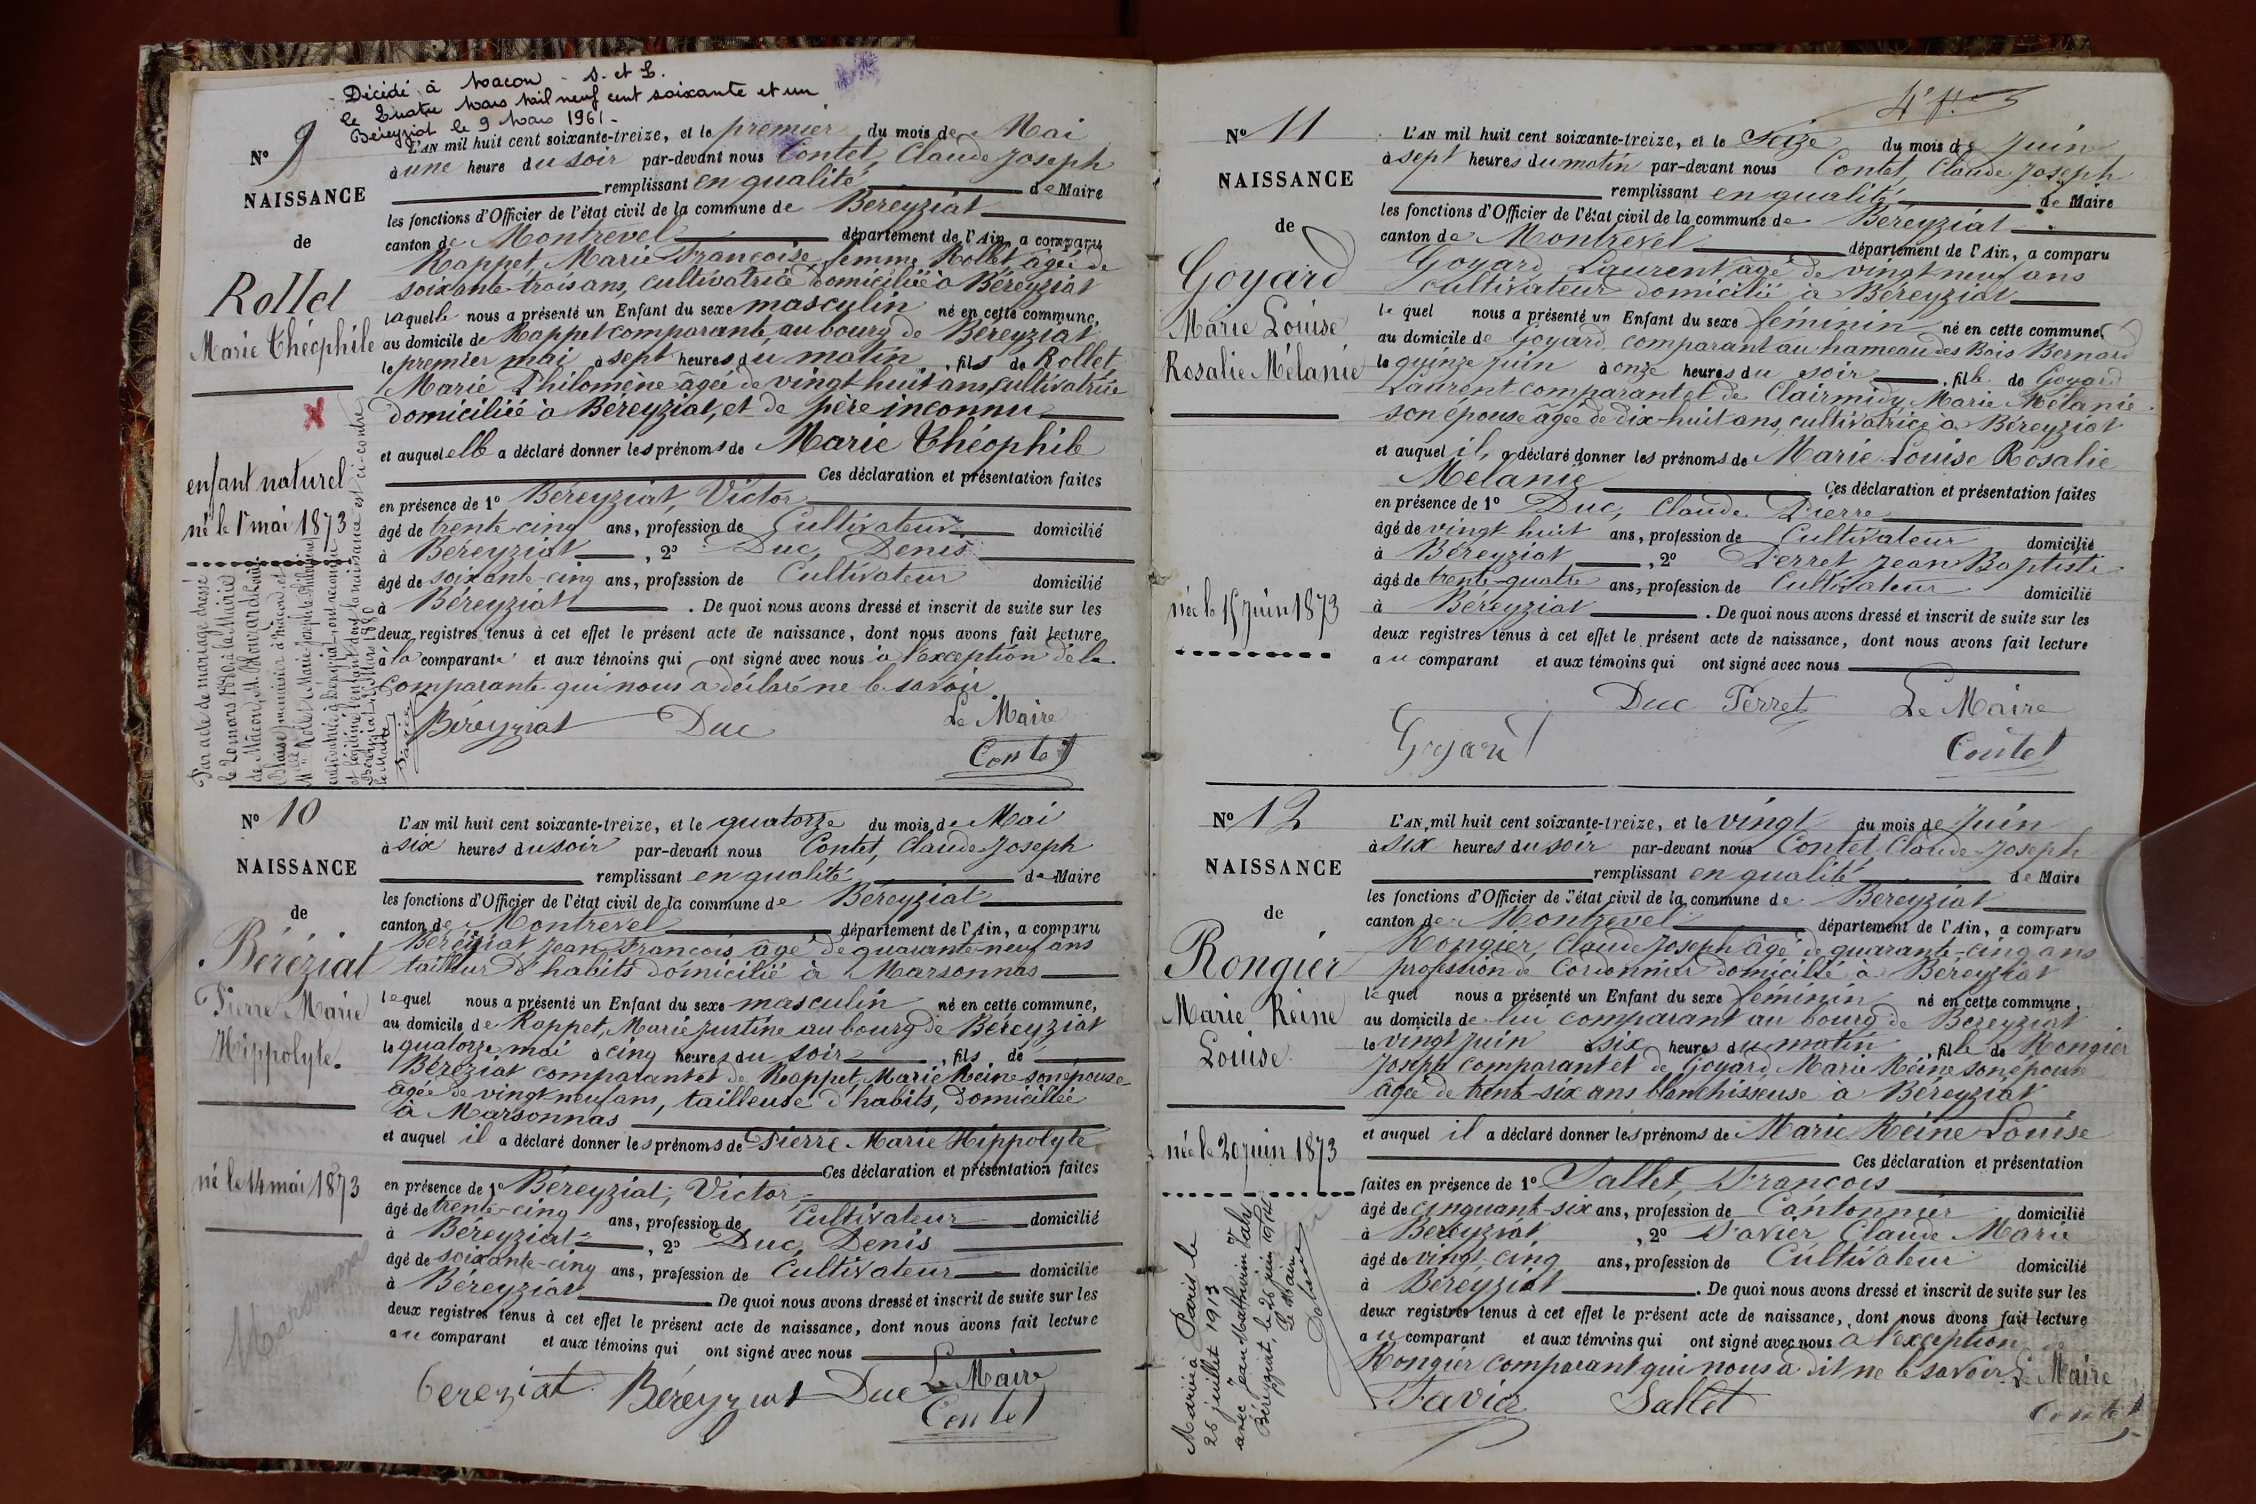 Décédé à Macon - S. et L.
le Quatre Mars Mil neuf cent soixante et un
Béreyziat le 9 Mars 1961 -
N° 9
NAISSANCE
de
Rollet
Marie Théophile
enfant naturel
né le 1er mai 1873
Par acte de mariage dressé
le 20 mars 1880 à la Mairie
de Mâcon, M.
Blaise, menuisier à Mâcon, et
Mlle Rollet Marie Josephte Philomène
cultivatrice à Béreyziat ont reconnu
et légitimé l'enfant dont la naissance est ci-contre
Béreyziat, Mars 1880
le Maire
L'AN mil huit cent soixante-treize, et le premier du mois de Mai
à une heure du soir par-devant nous Contet, Claude Joseph
remplissant en qualité de Maire
les fonctions d'Officier de l'état civil de la commune de Béreyziat
canton de Montrevel département de l'Ain, a comparu
Rappet, Marie Françoise femme Rollet âgée de
soixante-trois ans, cultivatrice domiciliée à Béreyziat
laquelle nous a présenté un Enfant du sexe masculin né en cette commune,
au domicile de Rappet comparante, au bourg de Béreyziat
le premier mai à sept heures du matin, fils de Rollet
Marie Philomène âgée de vingt huit ans, cultivatrice
domiciliée à Béreyziat, et de père inconnu
et auquel elle a déclaré donner les prénoms de Marie Théophile
Ces déclaration et présentation faites
en présence de 1° Béreyziat, Victor
âgé de trente-cinq ans, profession de Cultivateur domicilié
à Béreyziat, 2° Duc, Denis
âgé de soixante-cinq ans, profession de Cultivateur domicilié
à Béreyziat. De quoi nous avons dressé et inscrit de suite sur les
deux registres tenus à cet effet le présent acte de naissance, dont nous avons fait lecture
à la comparante et aux témoins qui ont signé avec nous à l'exception de la
comparante qui nous a déclaré ne le savoir
Béreyziat Duc Le Maire
Contet
N° 10
NAISSANCE
de
Béréziat
Pierre Marie
Hippolyte.
né le 14 mai 1873
Marsonnas
L'AN mil huit cent soixante-treize, et le quatorze du mois de Mai
à six heures du soir par-devant nous Contet, Claude Joseph
remplissant en qualité de Maire
les fonctions d'Officier de l'état civil de la commune de Béreyziat
canton de Montrevel département de l'Ain, a comparu
Béréziat, Jean François, âgé de quarante-neuf ans
tailleur d'habits domicilié à Marsonnas
lequel nous a présenté un Enfant du sexe masculin né en cette commune,
au domicile de Rappet, Marie Justine au bourg de Béreyziat
le quatorze mai à cinq heures du soir, fils de
Béréziat comparant et de Rappet, Marie Reine son épouse
âgée de vingt neuf ans, tailleuse d'habits, domiciliée
à Marsonnas
et auquel il a déclaré donner les prénoms de Pierre Marie Hippolyte
Ces déclaration et présentation faites
en présence de 1° Béreyziat, Victor,
âgé de trente-cinq ans, profession de Cultivateur domicilié
à Béreyziat, 2° Duc, Denis
âgé de soixante-cinq ans, profession de Cultivateur domicilié
à Béreyziat. De quoi nous avons dressé et inscrit de suite sur les
deux registres tenus à cet effet le présent acte de naissance, dont nous avons fait lecture
au comparant et aux témoins qui ont signé avec nous
bereziat. Béreyziat Duc Le Maire
Contet
N° 11
NAISSANCE
de
Goyard
Marie Louise
Rosalie Mélanie
née le 15 juin 1873
L'AN mil huit cent soixante-treize, et le Seize du mois de Juin
à sept heures du matin par-devant nous Contet, Claude Joseph
remplissant en qualité de Maire
les fonctions d'Officier de l'état civil de la commune de Béreyziat
canton de Montrevel département de l'Ain, a comparu
Goyard, Laurent âgé de vingt neuf ans
cultivateur domicilié à Béreyziat
lequel nous a présenté un Enfant du sexe féminin né en cette commune
au domicile de Goyard, comparant au hameau des Bois Bernard
le quinze juin à onze heures du soir, fille de Goyard
Laurent comparant et de Clairmidy, Marie Mélanie
son épouse âgée de dix-huit ans, cultivatrice à Béreyziat
et auquel il a déclaré donner les prénoms de Marie Louise Rosalie
Mélanie Ces déclaration et présentation faites
en présence de 1° Duc, Claude Pierre
âgé de vingt huit ans, profession de Cultivateur domicilié
à Béreyziat, 2° Perret Jean Baptiste
âgé de trente-quatre ans, profession de Cultivateur domicilié
à Béreyziat. De quoi nous avons dressé et inscrit de suite sur les
deux registres tenus à cet effet le présent acte de naissance, dont nous avons fait lecture
au comparant et aux témoins qui ont signé avec nous
Duc Perret Le Maire
Goyard Contet
N° 12
NAISSANCE
de
Rongier
Marie Reine
Louise.
née le 20 juin 1873
Marié à Paris le
26 juillet 1913
avec Jean Mathurin
Béreyziat, le 26 juin
Le Maire
L'AN mil huit cent soixante-treize, et le vingt du mois de Juin
à six heures du soir par-devant nous Contet, Claude Joseph
remplissant en qualité de Maire
les fonctions d'Officier de l'état civil de la commune de Béreyziat
canton de Montrevel département de l'Ain, a comparu
Rongier, Claude Joseph âgé de quarante-cinq ans
profession de Cordonnier domicilié à Béreyziat
lequel nous a présenté un Enfant du sexe féminin né en cette commune,
au domicile de lui comparant au bourg de Béreyziat
le vingt juin à six heures du matin, fille de Rongier
Joseph comparant et de Goyard Marie Reine son épouse
âgée de trente-six ans blanchisseuse à Béreyziat
et auquel il a déclaré donner les prénoms de Marie Reine Louise
Ces déclaration et présentation
faites en présence de 1° Sallet, François
âgé de cinquant-six ans, profession de Cantonnier domicilié
à Béreyziat, 2° Favier, Claude Marie
âgé de vingt-cinq ans, profession de Cultivateur domicilié
à Béreyziat. De quoi nous avons dressé et inscrit de suite sur les
deux registres tenus à cet effet le présent acte de naissance, dont nous avons fait lecture
au comparant et aux témoins qui ont signé avec nous à l'exception
Rongier comparant qui nous a dit ne le savoir Le Maire
Favier Sallet Contet